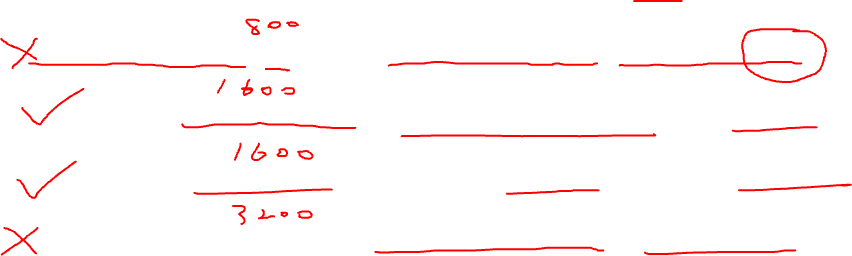 800
1600
1600
3200